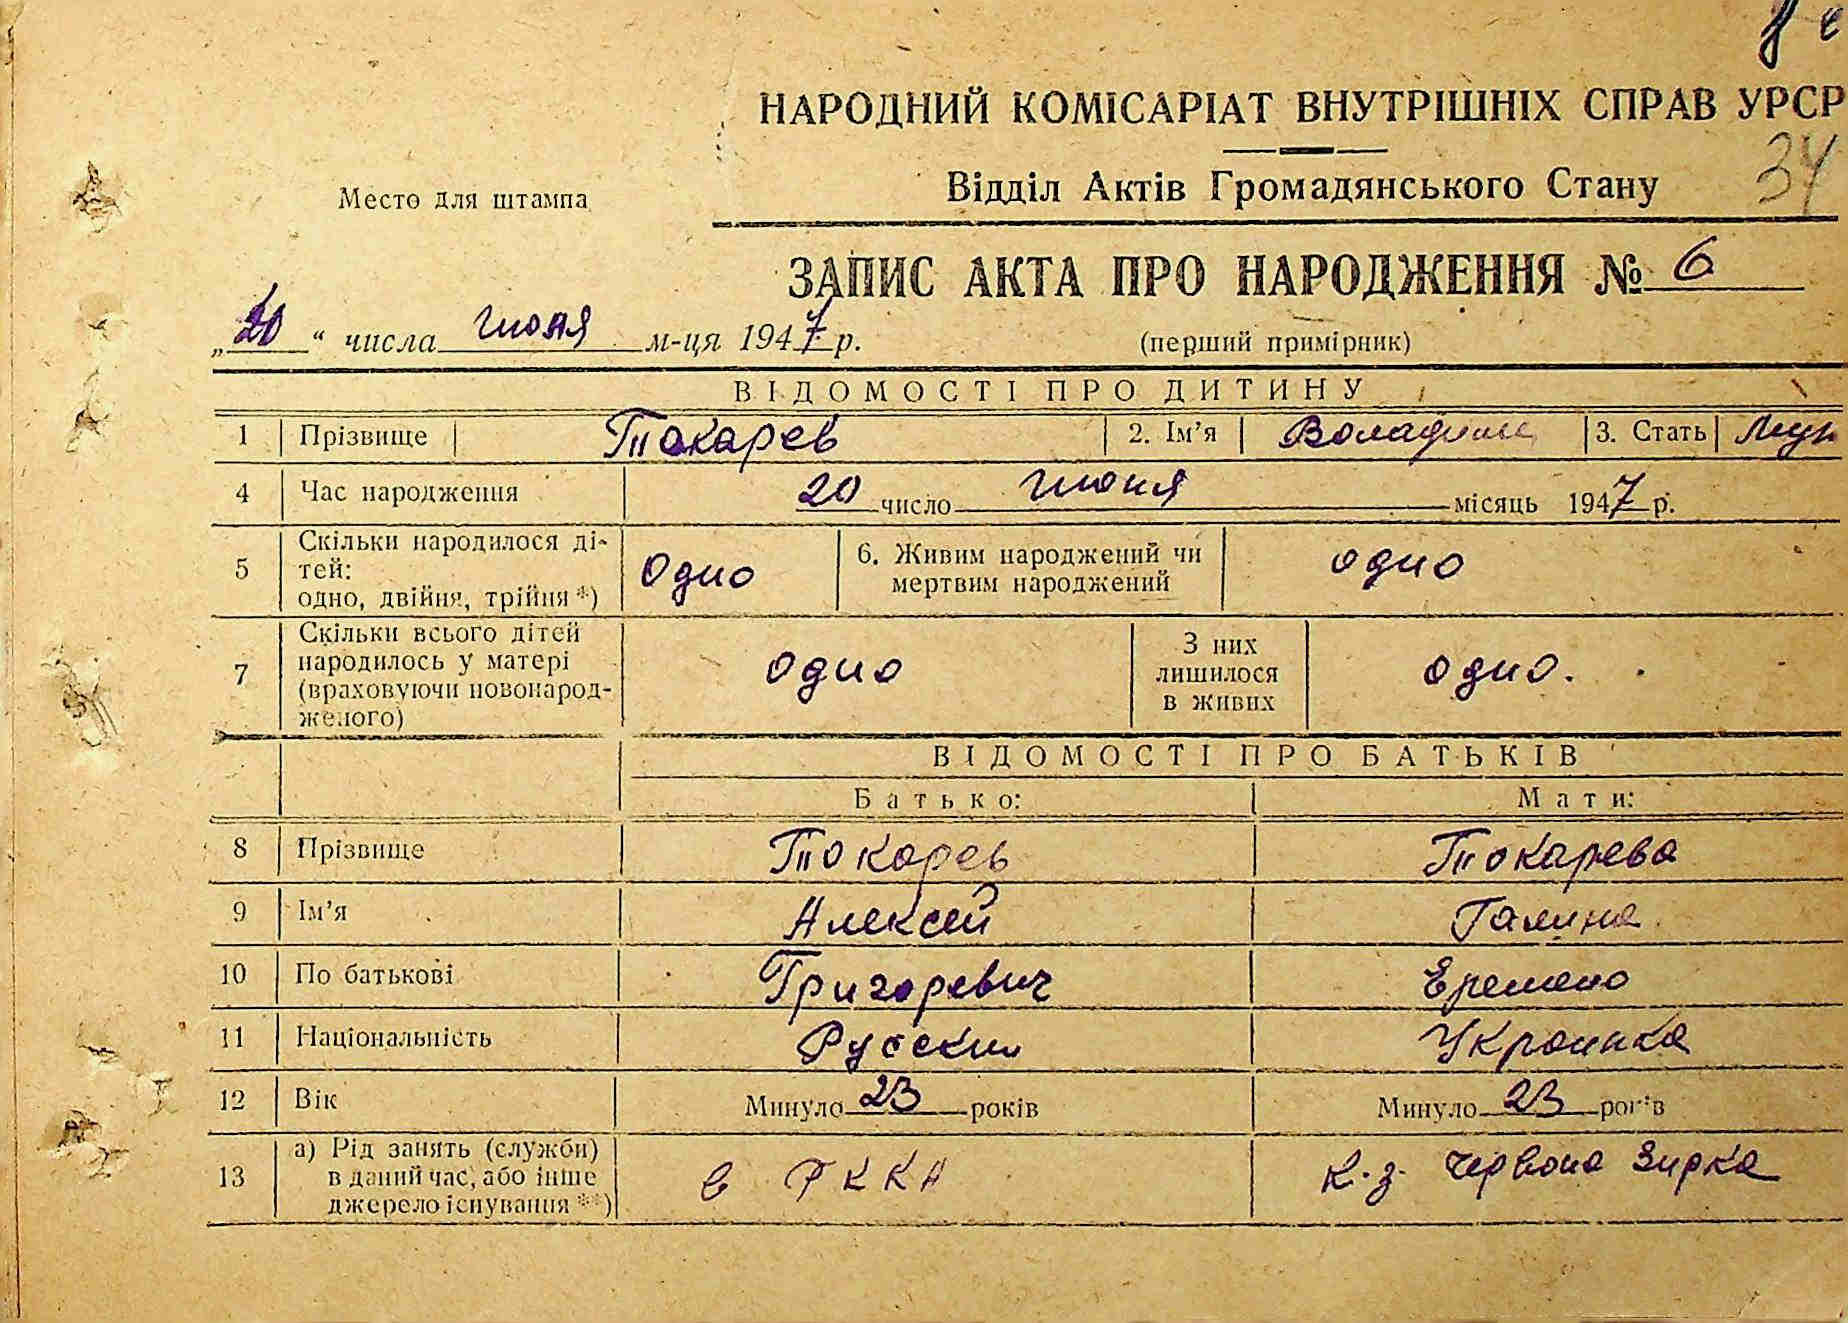 НАРОДНИЙ КОМІСАРІАТ ВНУТРІШНІХ СПРАВ УРСР
34
Место для штампа
Відділ Актів Громадянського Стану
ЗАПИС АКТА ПРО НАРОДЖЕННЯ № 6
„20“ числа июня м-ця 1947 р.
(перший примірник)
ВІДОМОСТІ ПРО ДИТИНУ
1 Прізвище Токарев 2. Ім’я Володимир 3. Стать Муж
4 Час народження 20 число июня місяць 1947 р.
5 Скільки народилося ді-
тей:
одно, двійня, трійня *) Одно 6. Живим народжений чи
мертвим народжений одно
7 Скільки всього дітей
народилось у матері
(враховуючи новонарод-
женого) одно З них
лишилося
в живих одно.
ВІДОМОСТІ ПРО БАТЬКІВ
Батько: Мати:
8 Прізвище Токарев Токарева
9 Ім’я Алексей Галина
10 По батькові Григоревич
11 Національність Русский Украинка
12 Вік Минуло 23 років Минуло 23 років
13 а) Рід занять (служби)
в даний час, або інше
джерело існування **) в РККА к-з. Червона Зирка